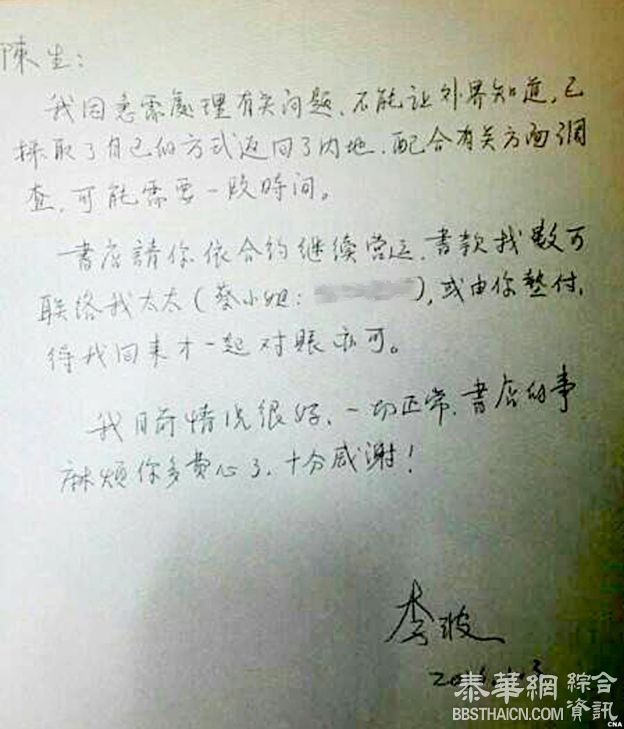 陳生：
我因急需處理有关问题，不能让外界知道，已
採取了自己的方式返回了内地，配合有关方面調
查，可能需要一段時间。
書店請你依合約继续营运，書款找數可
联络我太太（蔡小姐：），或由你墊付，
待我回来才一起对賬亦可。
我目前情况很好，一切正常，書店的事
麻煩你多費心了，十分感謝！
李波
2016.1.3
泰華網 綜合資訊
BBSTHAICN.COM
CNA